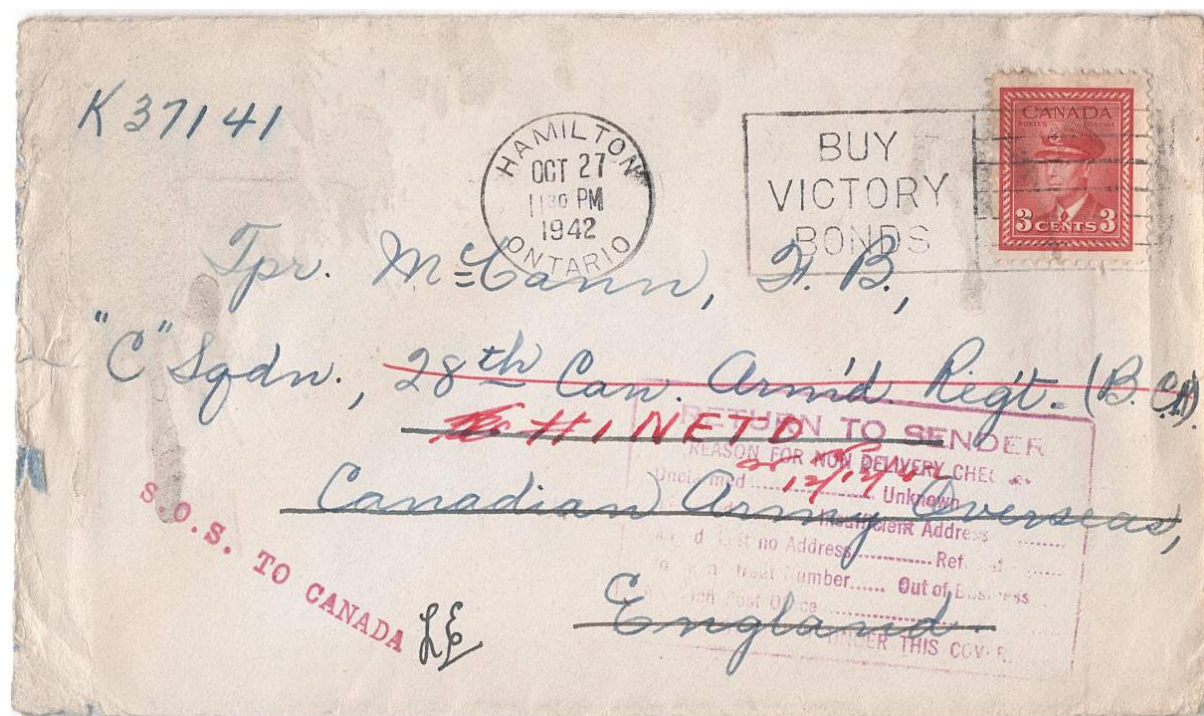 K 37141
HAMILTON
OCT 27
1130 PM
1942
ONTARIO
BUY
VICTORY
BONDS
CANADA
POSTES POSTAGE
3 CENTS 3
Tpr. McCann, F. B.,
"C" Sqdn., 28th Can. Arm'd. Reg't. (B.C.R).
# 1 NETD
12/12/42
Canadian Army Overseas,
England.
RETURN TO SENDER
REASON FOR NON DELIVERY CHECKED
Unclaimed Unknown
Insufficient Address
no Address Refused
Number Out of Business
Post Office
UNDER THIS COVER
S.O.S. TO CANADA
LE